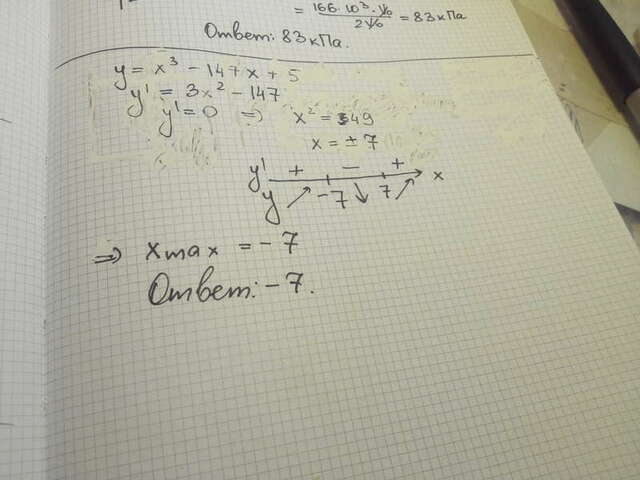 = 166·10³·V₀ / 2V₀ = 83кПа
Ответ: 83кПа.
y = x³ - 147x + 5
y' = 3x² - 147
y' = 0 => x² = 49
x = ±7
y' + - + x
y -7 7
=> xmax = -7
Ответ: -7.